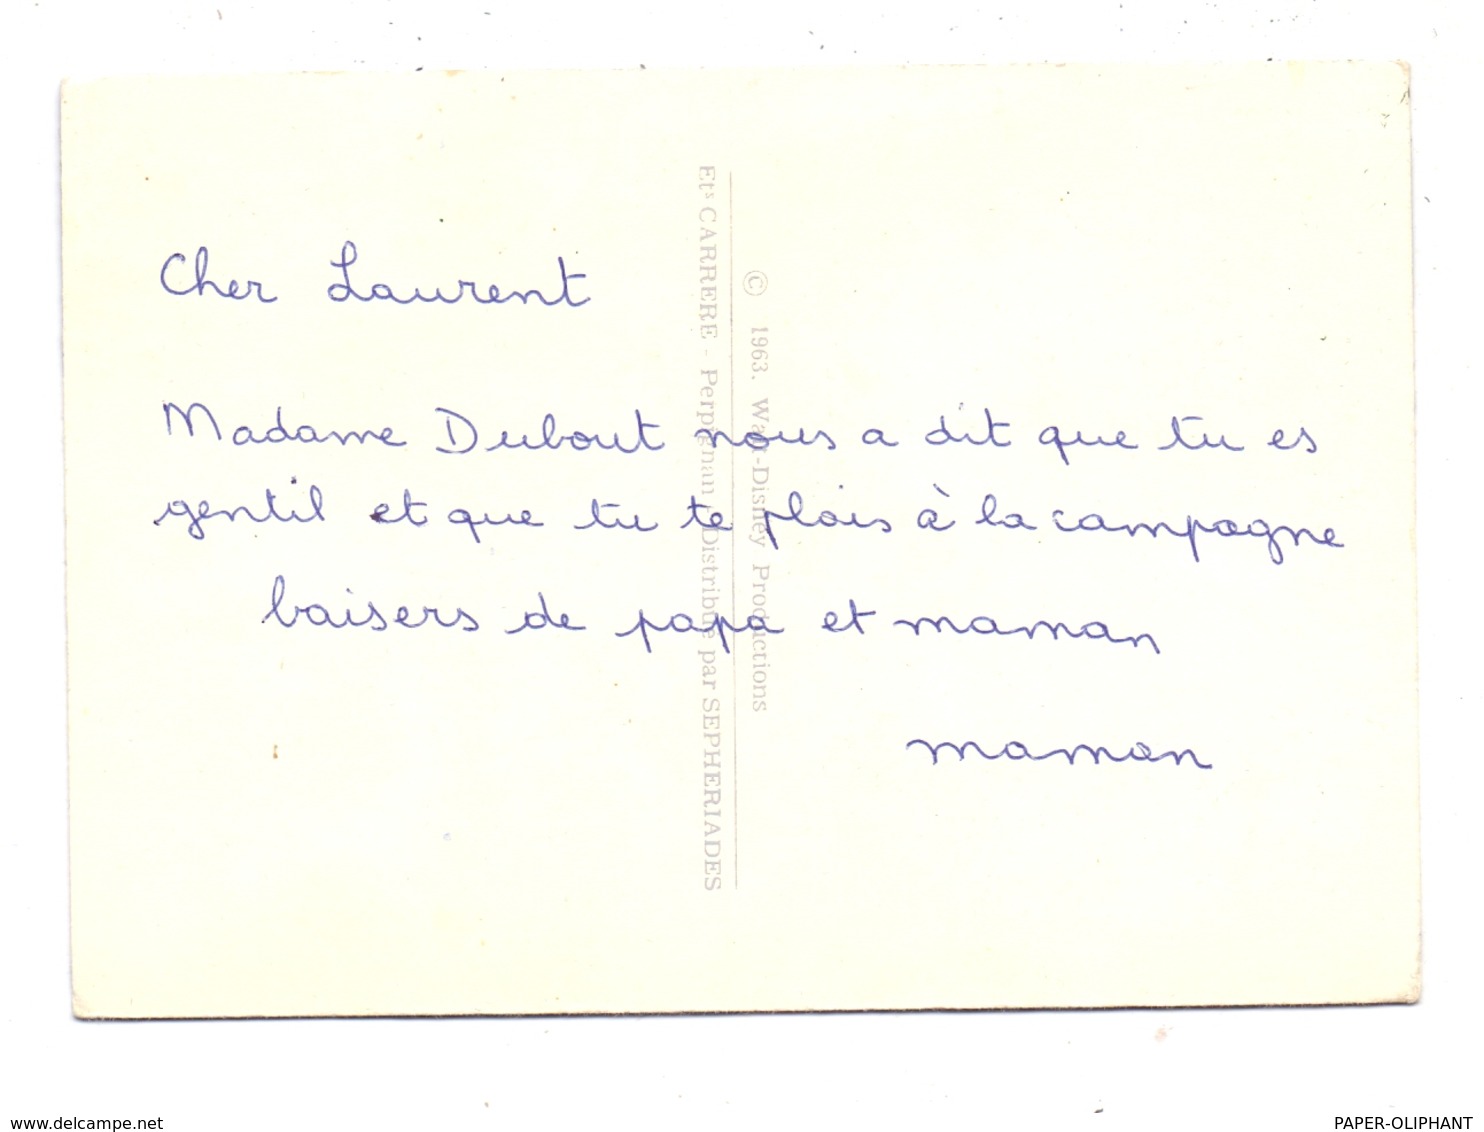 Cher Laurent
Madame Dubout nous a dit que tu es
gentil et que tu te plais à la campagne
baisers de papa et maman
maman
Ets CARRERE - Perpignan Distribué par SEPHERIADES
© 1963. Walt-Disney Productions
www.delcampe.net
PAPER-OLIPHANT